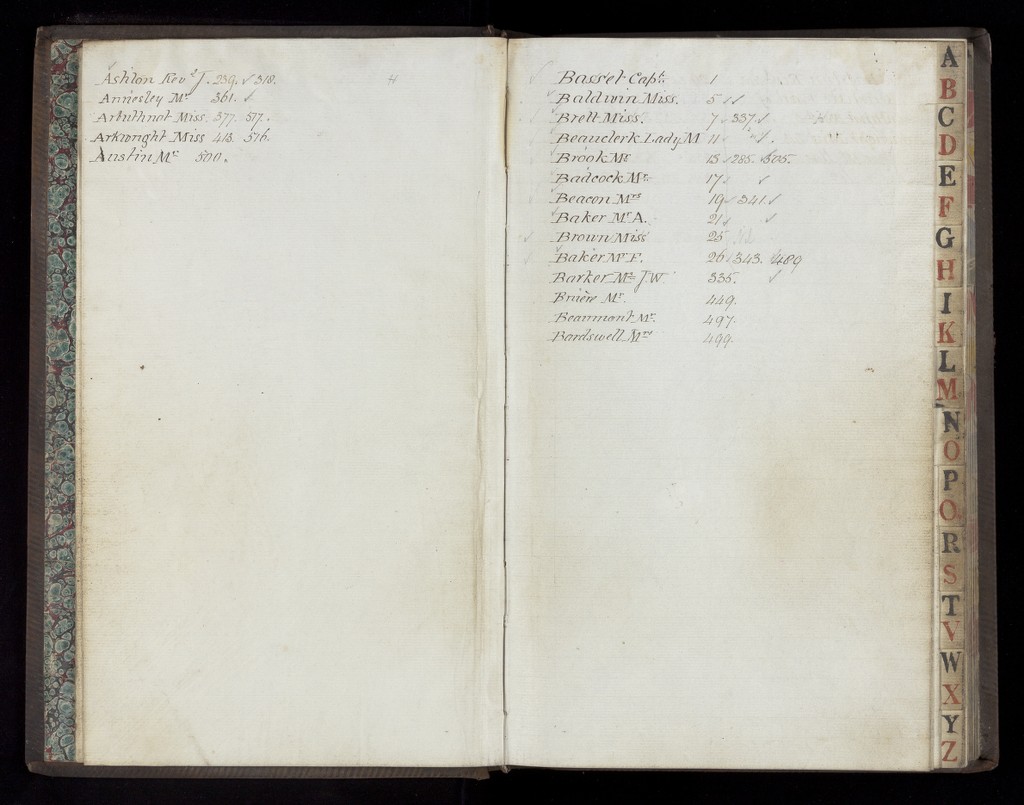 Ashton Revd J. 239. ✓ 318.
Annesley Mr 361. ✓
Arbuthnot Miss. 377. 517.
Arkwright Miss 413. 576.
Austin Mr 500.
Basset Capt. 1
Baldwin Miss. 5 ✓ ✓
Brett Miss. 7 ✓ 337. ✓
Beauclerk Lady M 11 ✓
Brook Mr 13 ✓ 285. 305.
Badcock Mr 17 ✓
Beacon Mrs 19 ✓ 341. ✓
Baker Mr A. 21 ✓ ✓
Brown Miss 25
Baker Mr F. 26 ✓ 343. 489
Barker Mr J.W. 335. ✓
Mr. 449.
Beaumont Mr. 497.
Bardswell Mrs 499.
A
B
C
D
E
F
G
H
I
K
L
M
N
O
P
Q
R
S
T
V
W
X
Y
Z